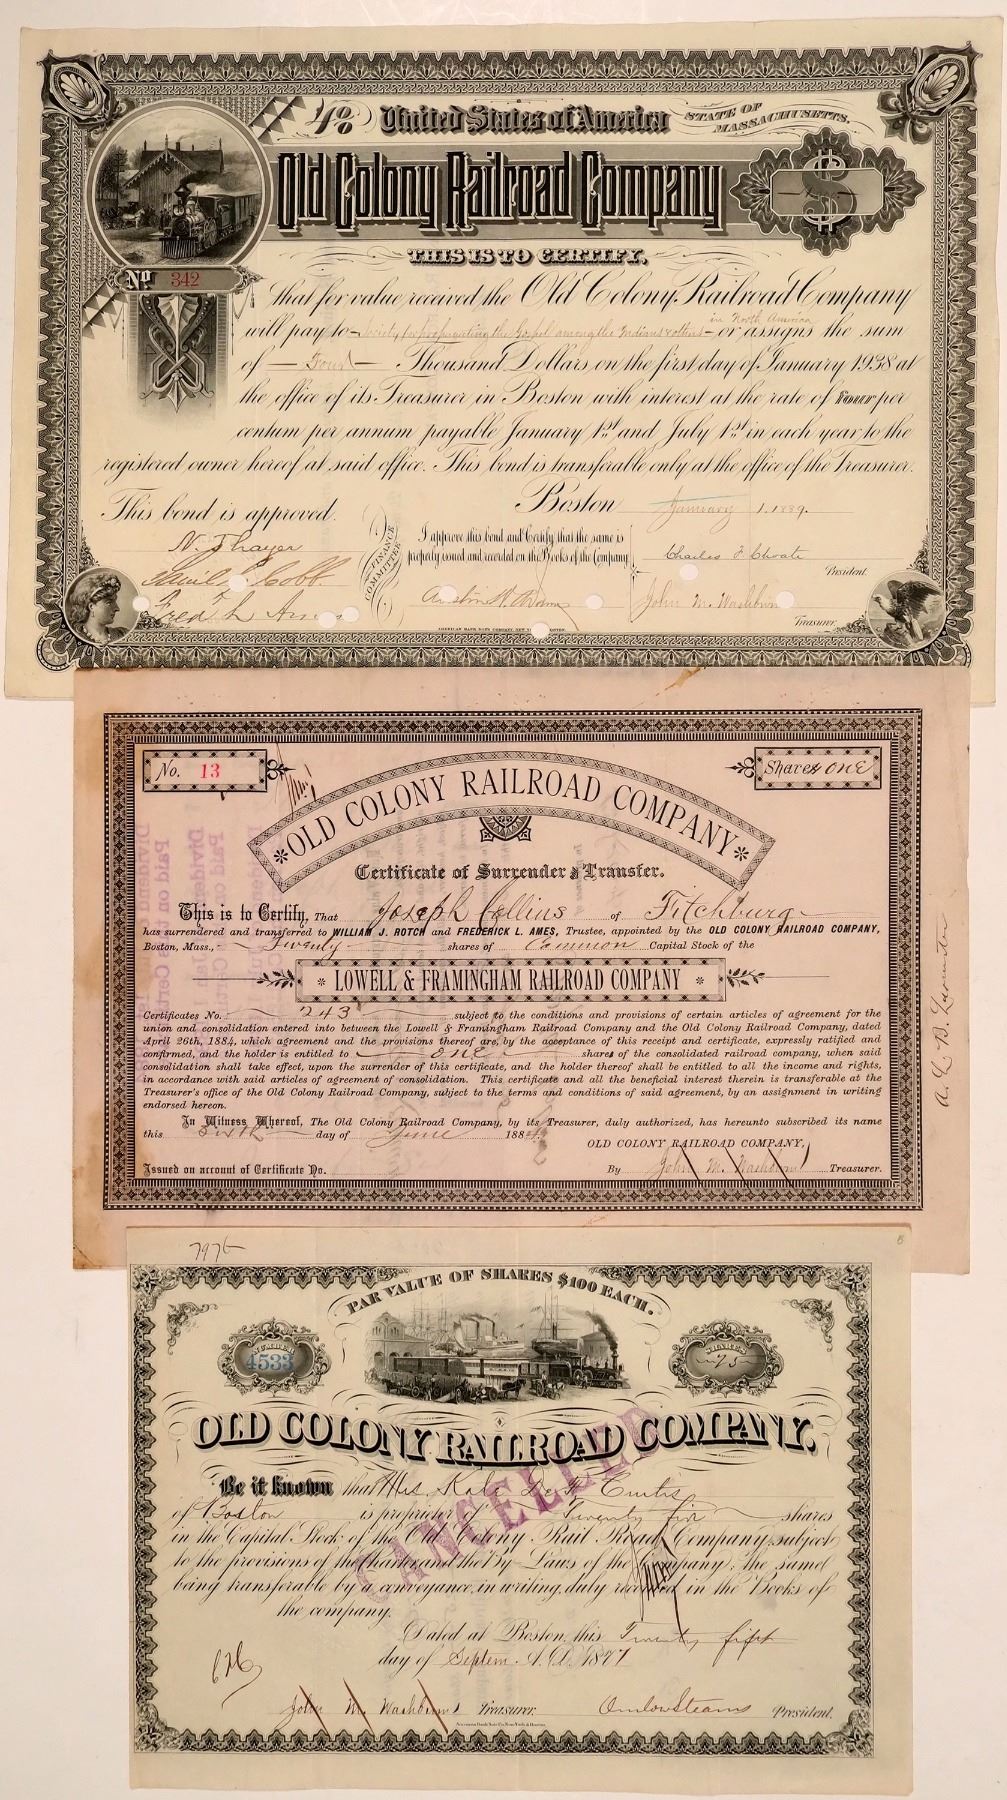 4% United States of America STATE OF MASSACHUSETTS.
Old Colony Railroad Company
THIS IS TO CERTIFY,
No 342
that for value received the Old Colony Railroad Company
in North America
will pay to Society for Propagating the Gospel among the Indians & others or assigns the sum
of Four Thousand Dollars on the first day of January 1938 at
the office of its Treasurer in Boston with interest at the rate of FOUR per
centum per annum payable January 1st and July 1st in each year to the
registered owner hereof at said office. This bond is transferable only at the office of the Treasurer.
Boston January 1. 1889.
This bond is approved.
N. Thayer
Fred L Ames
FINANCE COMMITTEE
I approve this bond and Certify that the same is
properly issued and recorded on the Books of the Company
Charles F Choate
President.
John M. Washburn
Treasurer.
AMERICAN BANK NOTE COMPANY, NEW YORK & BOSTON.
No. 13
Shares ONE
OLD COLONY RAILROAD COMPANY
Certificate of Surrender and Transfer.
This is to Certify, That Joseph Collins of Fitchburg
has surrendered and transferred to WILLIAM J. ROTCH and FREDERICK L. AMES, Trustee, appointed by the OLD COLONY RAILROAD COMPANY,
Boston, Mass., Twenty shares of Common Capital Stock of the
LOWELL & FRAMINGHAM RAILROAD COMPANY
Certificates No. 243 subject to the conditions and provisions of certain articles of agreement for the
union and consolidation entered into between the Lowell & Framingham Railroad Company and the Old Colony Railroad Company, dated
April 26th, 1884, which agreement and the provisions thereof are, by the acceptance of this receipt and certificate, expressly ratified and
confirmed, and the holder is entitled to one shares of the consolidated railroad company, when said
consolidation shall take effect, upon the surrender of this certificate, and the holder thereof shall be entitled to all the income and rights,
in accordance with said articles of agreement of consolidation. This certificate and all the beneficial interest therein is transferable at the
Treasurer's office of the Old Colony Railroad Company, subject to the terms and conditions of said agreement, by an assignment in writing
endorsed hereon.
In Witness Whereof, The Old Colony Railroad Company, by its Treasurer, duly authorized, has hereunto subscribed its name
this Sixth day of June 1884
OLD COLONY RAILROAD COMPANY,
Issued on account of Certificate No.
By John M. Washburn Treasurer.
PAR VALUE OF SHARES $100 EACH.
NUMBER
4533
SHARES
OLD COLONY RAILROAD COMPANY,
CANCELLED
Be it known that Mrs. Kate Curtis
of Boston is proprietor of Twenty five shares
in the Capital Stock of the Old Colony Rail Road Company, subject
to the provisions of the Charter and the By-Laws of the Company; the same
being transferable by a conveyance, in writing, duly recorded in the Books of
the company.
Dated at Boston, this Twenty fifth
day of Septem. A.D. 1877
John M. Washburn Treasurer.
Onslow Stearns President.